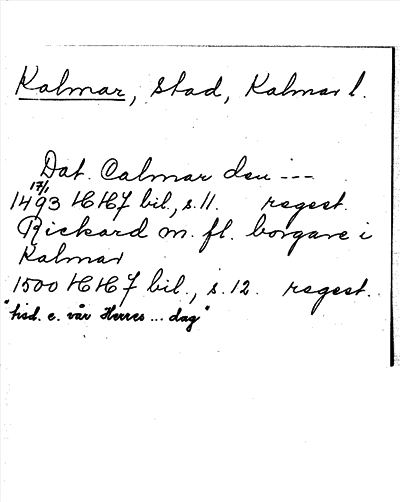 Kalmar, stad, Kalmar l.
Dat. Calmar den ---
17/1
1493 HHF bil., s. 11. regest.
Rickard m. fl. borgare i
Kalmar
1500 HHF bil., s. 12. regest.
"tisd. e. vår Herres ... dag"